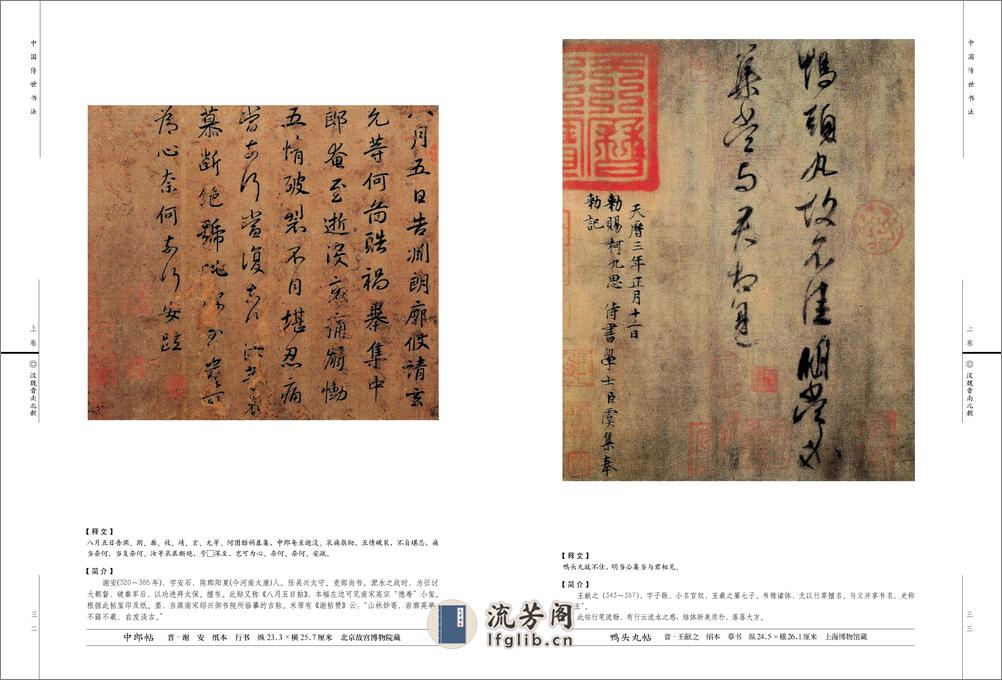 中国传世书法
上卷
◎汉魏晋南北朝
三二
八月五日告淵朗廓攸靖玄
允等何圖酷禍暴集中
郎奄至逝没哀痛崩慟
五情破裂不自堪忍痛
當奈何當復奈何汝等哀
慕断絶號咷深至豈可
為心奈何奈何安疏
【释文】
八月五日告渊、朗、廓、攸、靖、玄、允等。何图酷祸暴集，中郎奄至逝没。哀痛崩恸，五情破裂，不自堪忍，痛
当奈何，当复奈何。汝等哀慕断绝，号□深至，岂可为心。奈何、奈何。安疏。
【简介】
谢安(320～385年)，字安石，陈郡阳夏(今河南太康)人。任吴兴太守、吏部尚书。淝水之战时，为征讨
大都督，破秦军后，以功进拜太保。擅书。此贴又称《八月五日帖》，本幅左边可见南宋高宗“德寿”小玺。
根据此帖玺印及纸、墨，当属南宋绍兴御书院所临摹的古帖。米芾有《谢帖赞》云：“山林妙寄，岩廊英举，
不繇不羲，自发淡古。”
中郎帖 晋·谢 安 纸本 行书 纵23.3×横25.7厘米 北京故宫博物院藏
流芳阁
lfglib.cn
鴨頭丸故不佳明當必
集當与君相見
天曆三年正月十二日
勑賜柯九思 侍書學士臣虞集奉
勑記
【释文】
鸭头丸故不佳，明当必集当与君相见。
【简介】
王献之(343～387)，字子敬，小名官奴，王羲之第七子。书精诸体，尤以行草擅名，与父并享书名，史称“二
王”。
此帖行笔流畅，有行云流水之感，结体妍美质朴、落落大方。
鸭头丸帖 晋·王献之 绢本 草书 纵24.5×横26.1厘米 上海博物馆藏
中国传世书法
上卷
◎汉魏晋南北朝
三三